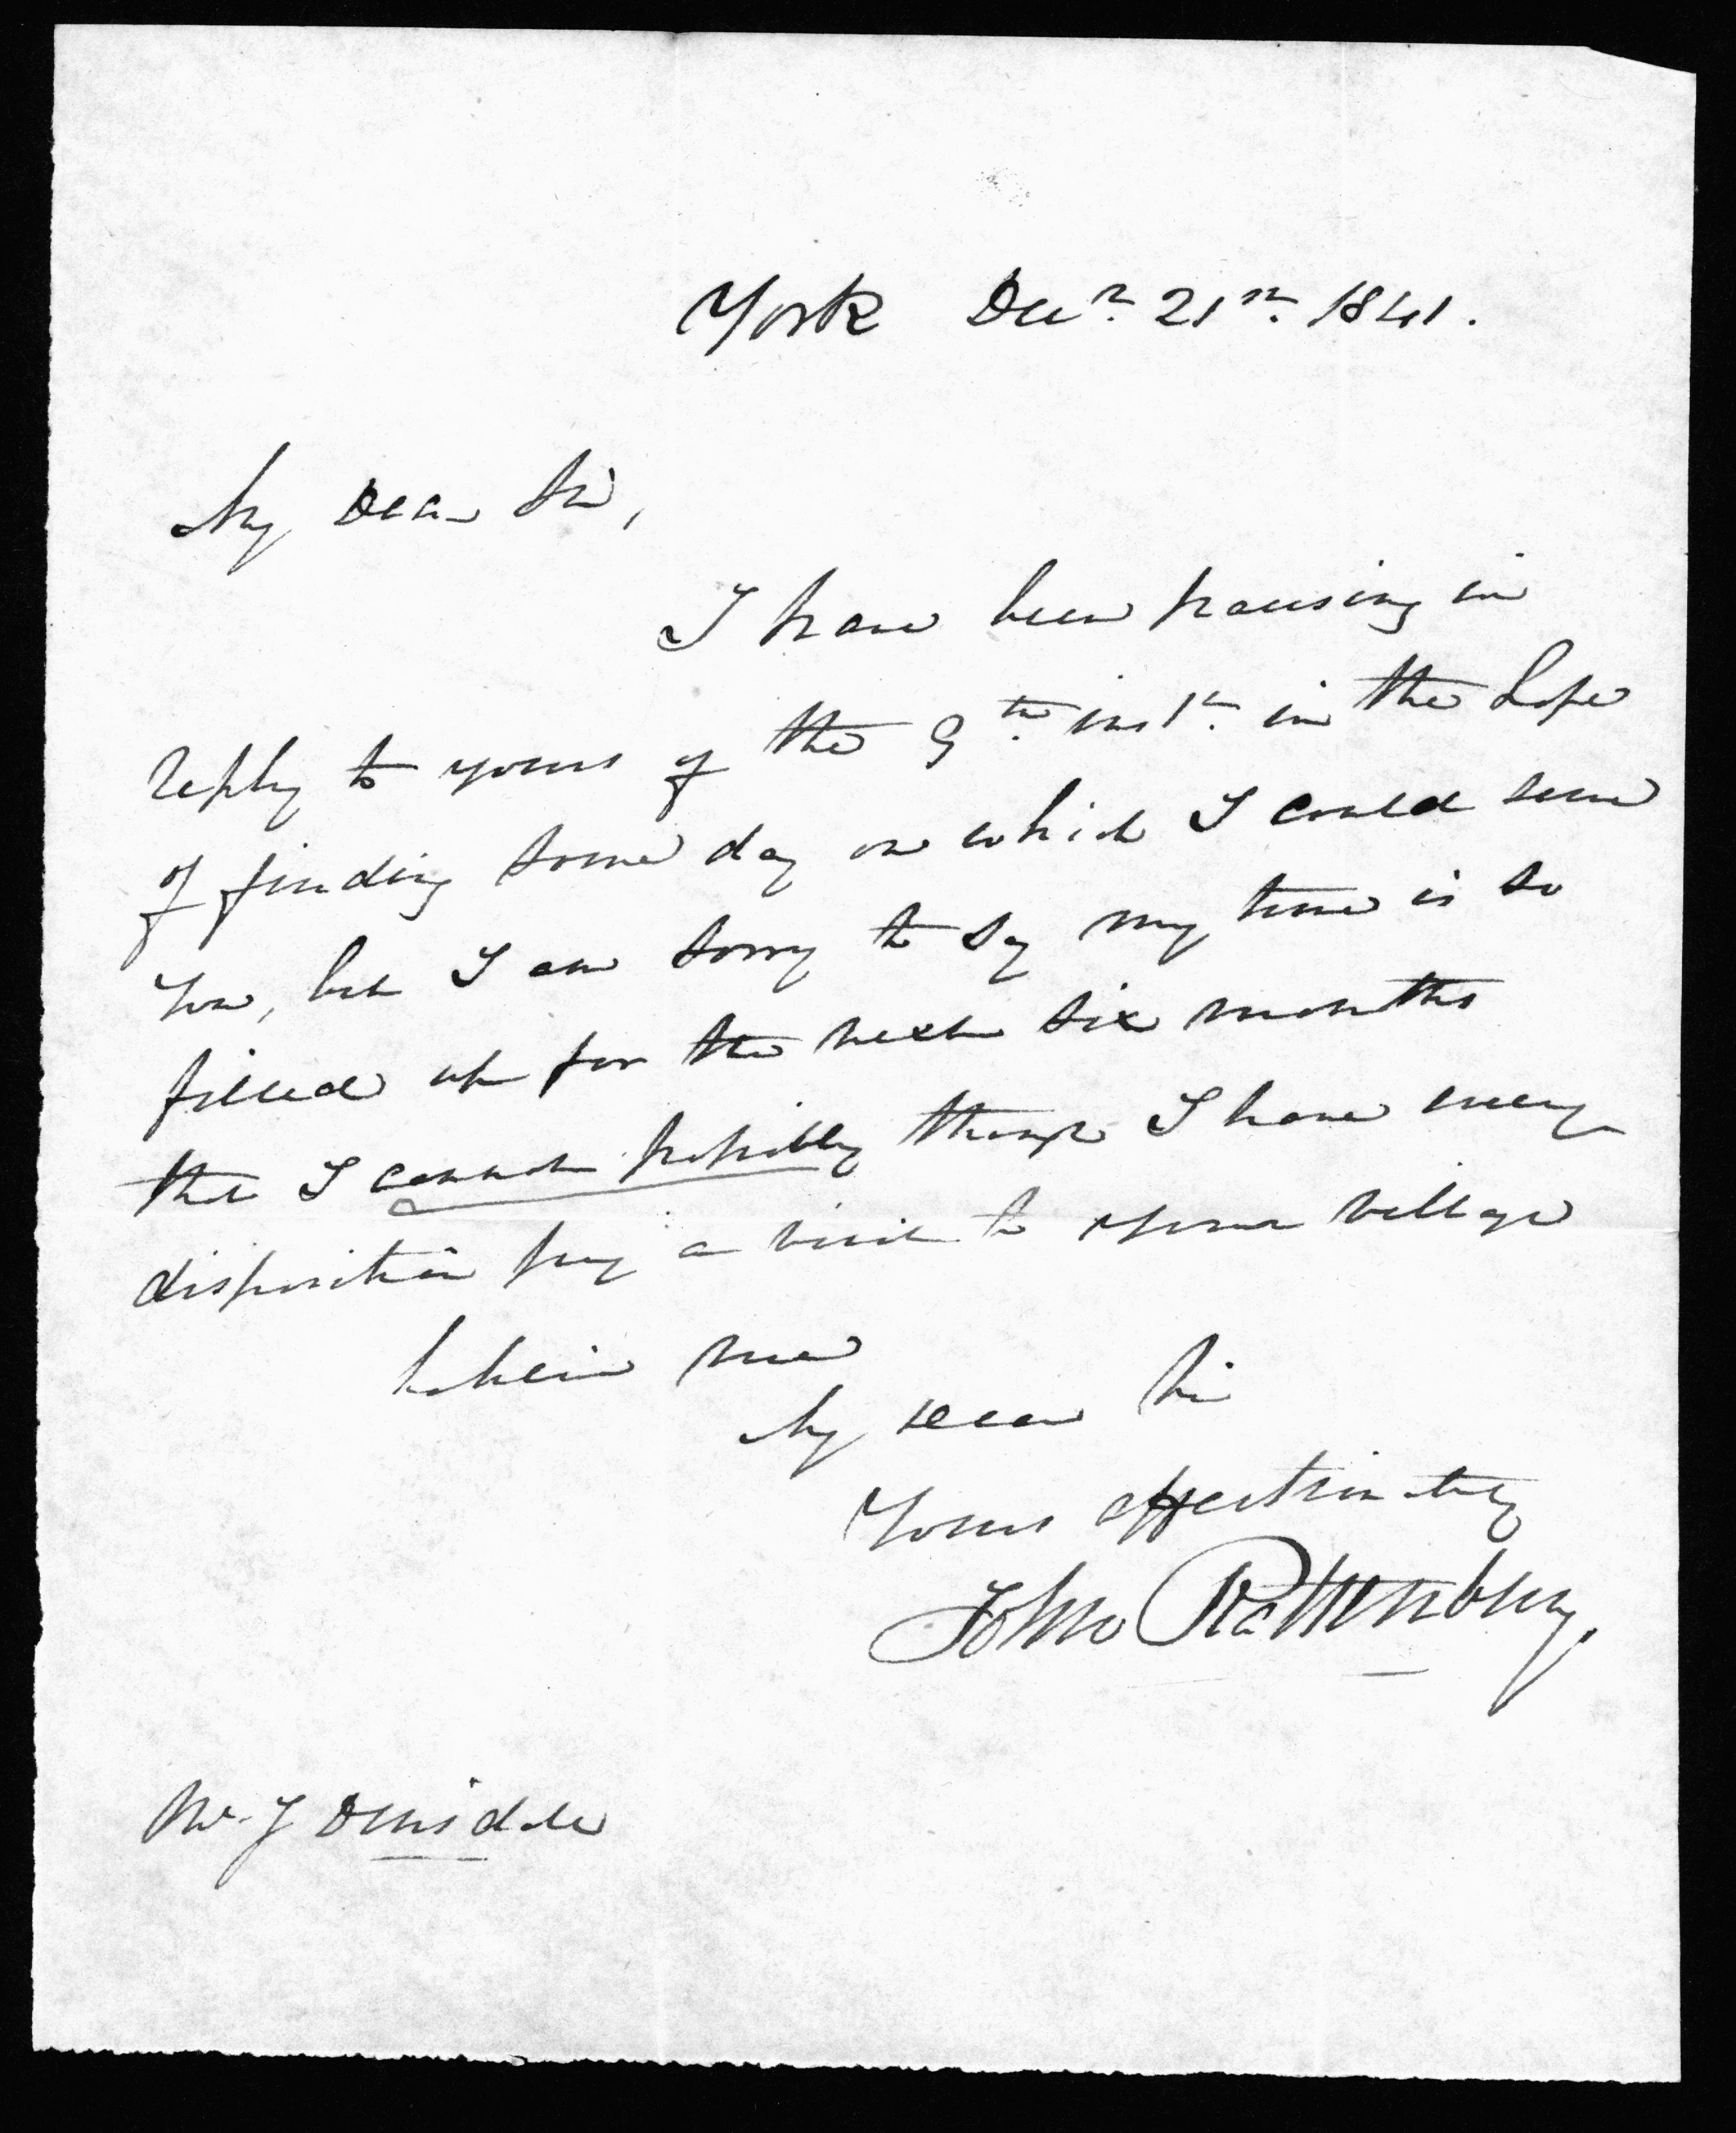 York Decr. 21st. 1841.
My Dear Sir,
I have been pausing in
reply to yours of the 9th. inst. in the hope
of finding some day on which I could serve
you, but I am sorry to say my time is so
filled up for the next six months
that I cannot possibly though I have every
disposition pay a visit to your village
believe me
My Dear Sir
Yours affectionately
John Rattenbury.
Mr. J